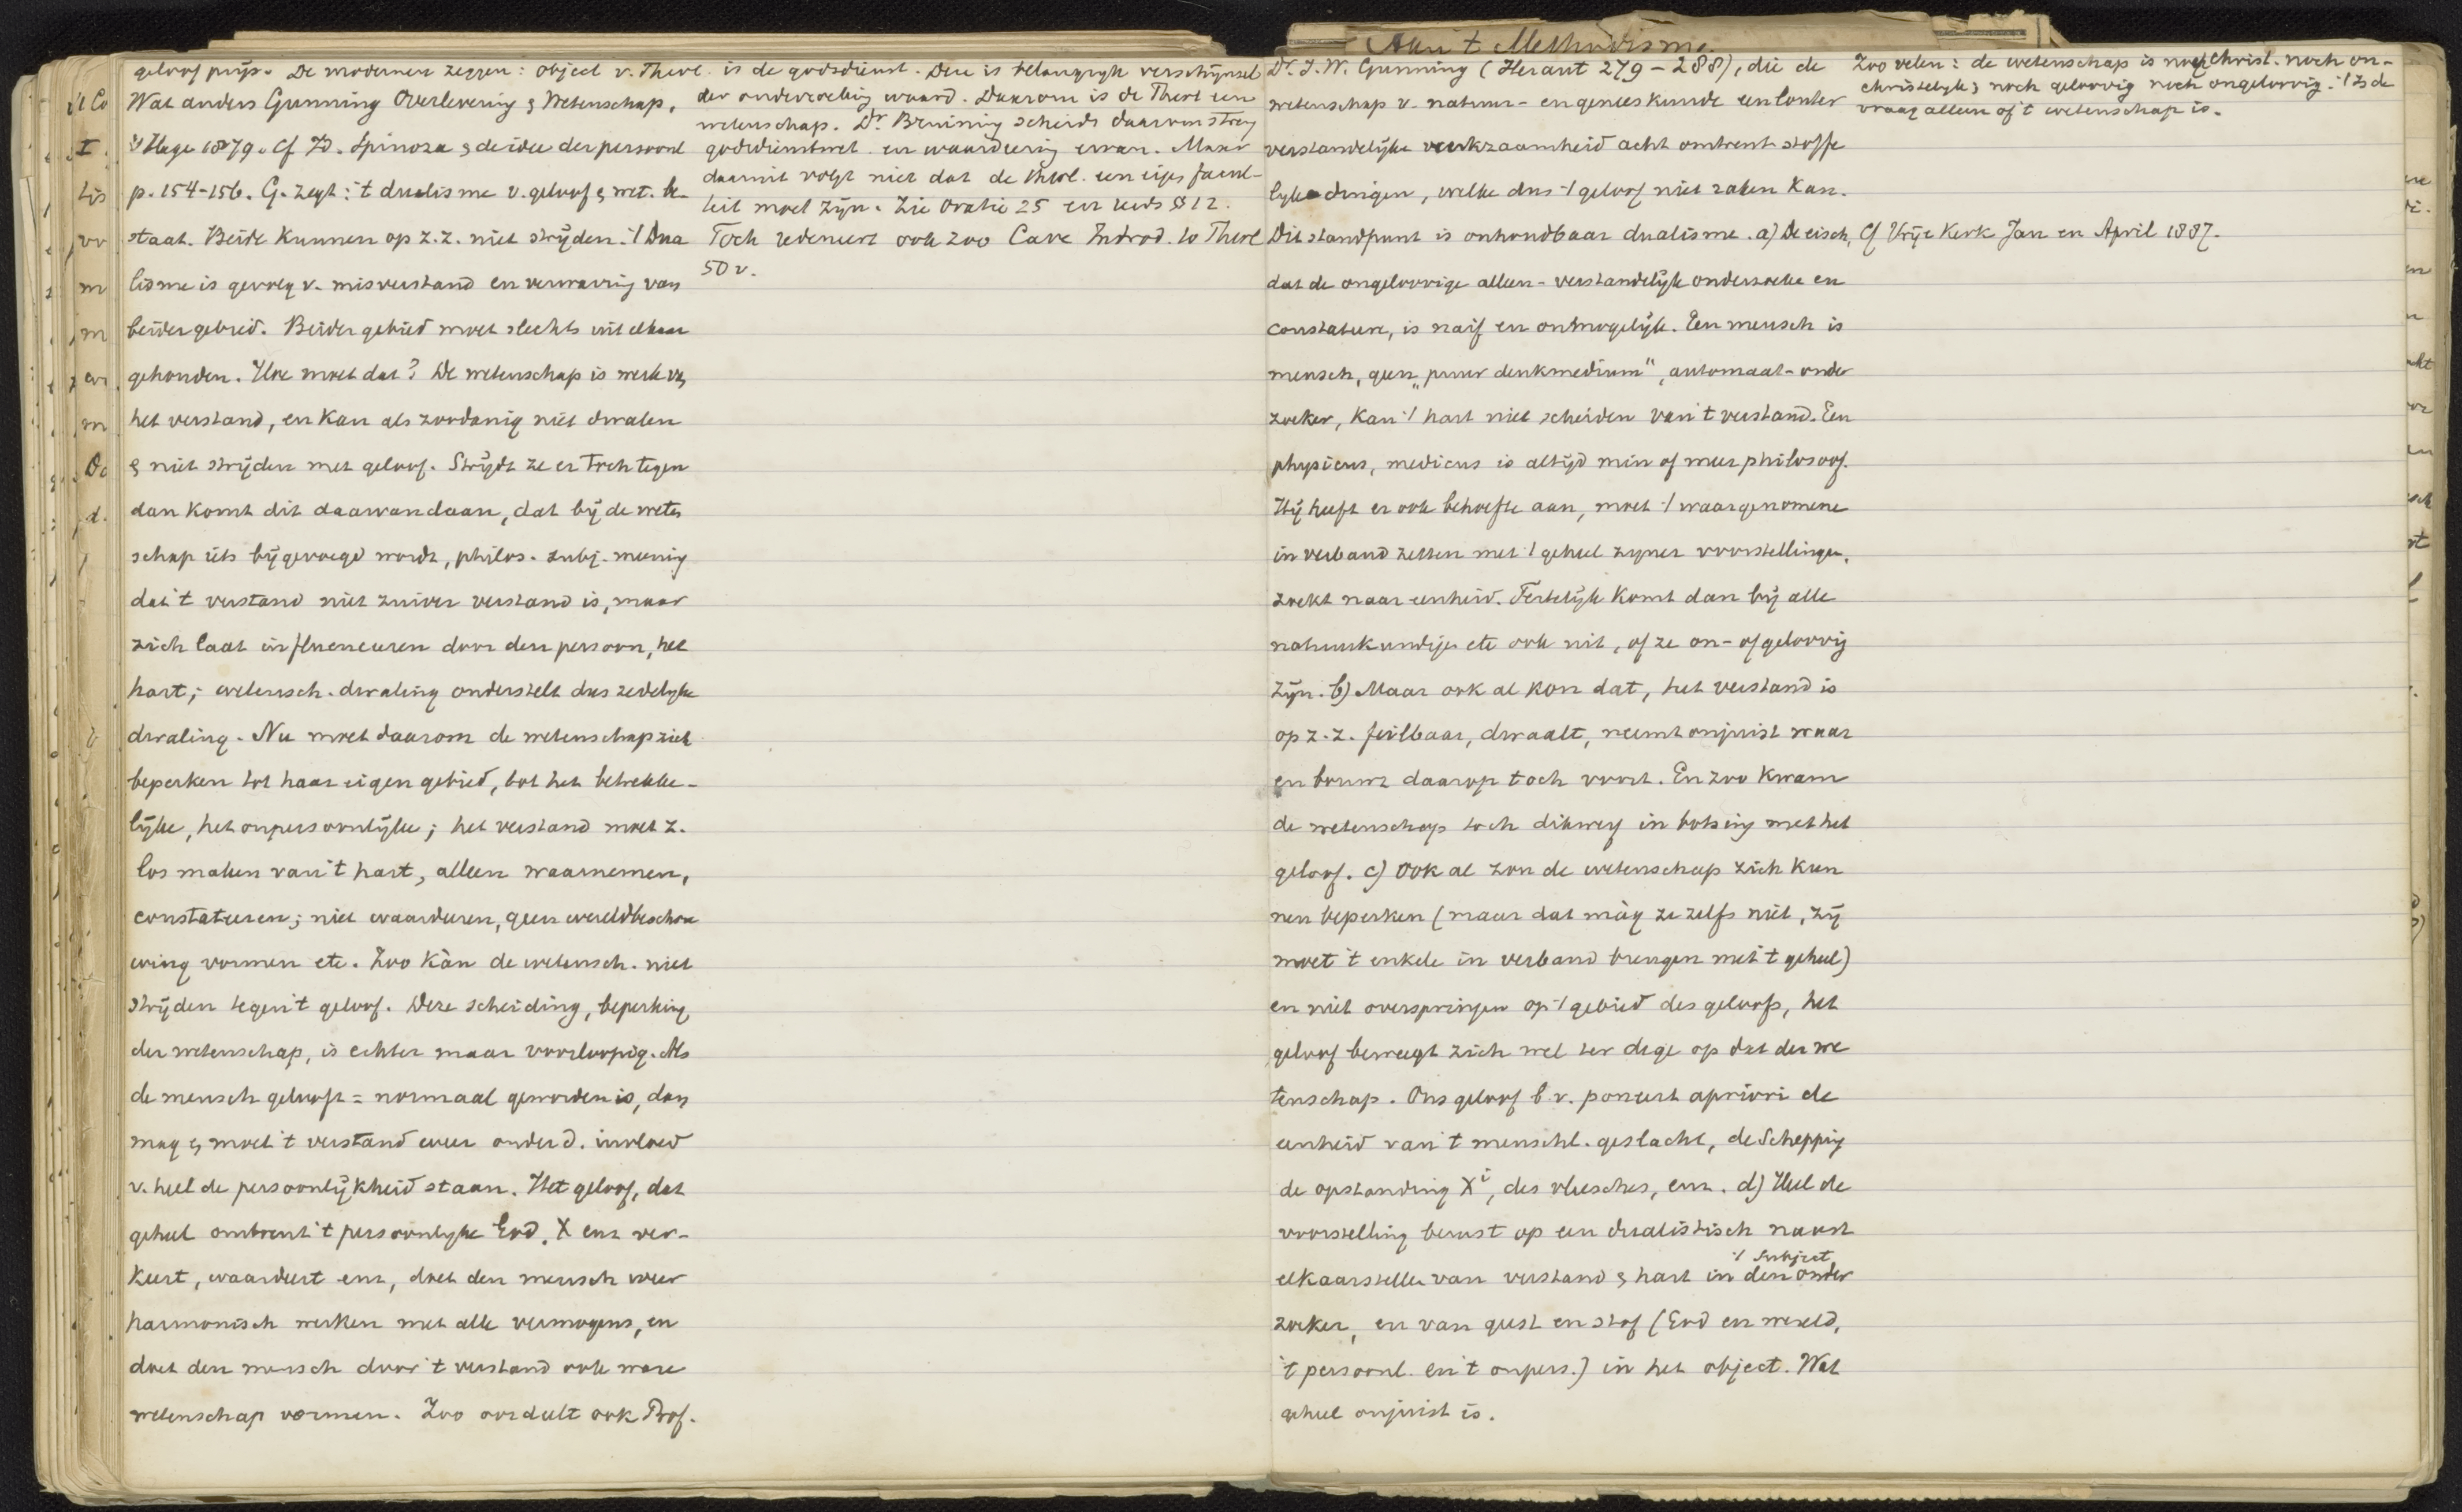 geloof prijs. De modernen zeggen: object v. Theol. is de godsdienst. Deze is belangrijk verschijnsel
Wat anders Gunning Overlevering & Wetenschap,
's Hage 1879. Cf Id. Spinoza & de idee der persoonl
p. 154-156. G. zegt: 't dualisme v. geloof & wet. be-
staat. Beide kunnen op z.z. niet strijden. 't Dua
lisme is gevolg v. misverstand en verwarring van
beider gebied. Beider gebied moet slechts uit elkaar
gehouden. Hoe moet dat? De wetenschap is werk van
het verstand, en kan als zoodanig niet dwalen
& niet strijden met geloof. Strijdt ze er toch tegen
dan komt dit daarvandaan, dat bij de weten
schap iets bijgevoegd wordt, philos. subj. meening
dat 't verstand niet zuiver verstand is, maar
zich laat influenceeren door den persoon, het
hart; wetensch. dwaling onderstelt dus zedelyke
dwaling. Nu moet daarom de wetenschap zich
beperken tot haar eigen gebied, tot het betrekke-
lijke, het onpersoonlijke; het verstand moet z.
los maken van 't hart, alleen waarnemen,
constateeren; niet waardeeren, geen wereldbeschou
wing vormen etc. Zoo kàn de wetensch. niet
strijden tegen 't geloof. Deze scheiding, beperking
der wetenschap, is echter maar voorloopig. Als
de mensch gelooft = normaal geworden is, dan
mag & moet 't verstand weer onder d. invloed
v. heel de persoonlijkheid staan. Het geloof, dat
geheel omtrent 't persoonlyke God, X enz ver-
keert, waardeert enz, doet den mensch weer
harmonisch werken met alle vermogens, en
doet den mensch door 't verstand ook ware
wetenschap vormen. Zoo oordeelt ook Prof.
der onderzoeking waard. Daarom is de Theol een
wetenschap. Dr. Bruining scheidt daarvan streng
godsdienstwet. en waardeering ervan. Maar
daaruit volgt niet dat de theol. een eigen facul-
teit moet zijn. Zie Oratie 25 en reeds § 12.
Toch redeneert ook zoo Cave Introd. to Theol
50 v.
Aan 't Methodisme.
Dr. J.W. Gunning (Heraut 279-288), die de
wetenschap v. natuur- en geneeskunde een louter
verstandelijke werkzaamheid acht omtrent stoffe
lyke dingen, welke dus 't geloof niet raken kan.
Dit standpunt is onhoudbaar dualisme. a) De eisch,
dat de ongeloovige alleen-verstandelijk onderzoeke en
constateere, is naif en onmogelijk. Een mensch is
mensch, geen "puur denkmedium", automaat-onder
zoeker, kan 't hart niet scheiden van 't verstand. Een
physicus, medicus is altijd min of meer philosoof.
Hij heeft er ook behoefte aan, moet 't waargenomene
in verband zetten met 't geheel zyner voorstellingen,
zoekt naar eenheid. Feitelijk komt dan bij alle
natuurkundigen etc ook uit, of ze on- of geloovig
zijn. b) Maar ook al kon dat, het verstand is
op z.z. feilbaar, dwaalt, neemt onjuist waar
en bouwt daarop toch voort. En zoo kwam
de wetenschap toch dikwerf in botsing met het
geloof. c) Ook al zou de wetenschap zich kun
nen beperken (maar dat màg ze zelfs niet, zij
moet 't enkele in verband brengen met 't geheel)
en niet overspringen op 't gebied des geloofs, het
geloof beweegt zich wel ter dege op dat der we
tenschap. Ons geloof b.v. poneert apriori de
eenheid van 't menschl. geslacht, de Schepping
de opstanding Xi, des vleesches, enz. d) Heel de
voorstelling berust op een dualistisch naast
elkaarstellen van verstand & hart in 't subject den onder
zoeker, en van geest en stof (God en wereld,
't persoonl. en 't onpers.) in het object. Wat
geheel onjuist is.
Zoo velen: de wetenschap is noch Christ. noch on-
christelyk, noch geloovig noch ongeloovig. 't Is de
vraag alleen of 't wetenschap is.
Cf Vrije Kerk Jan en April 1887.